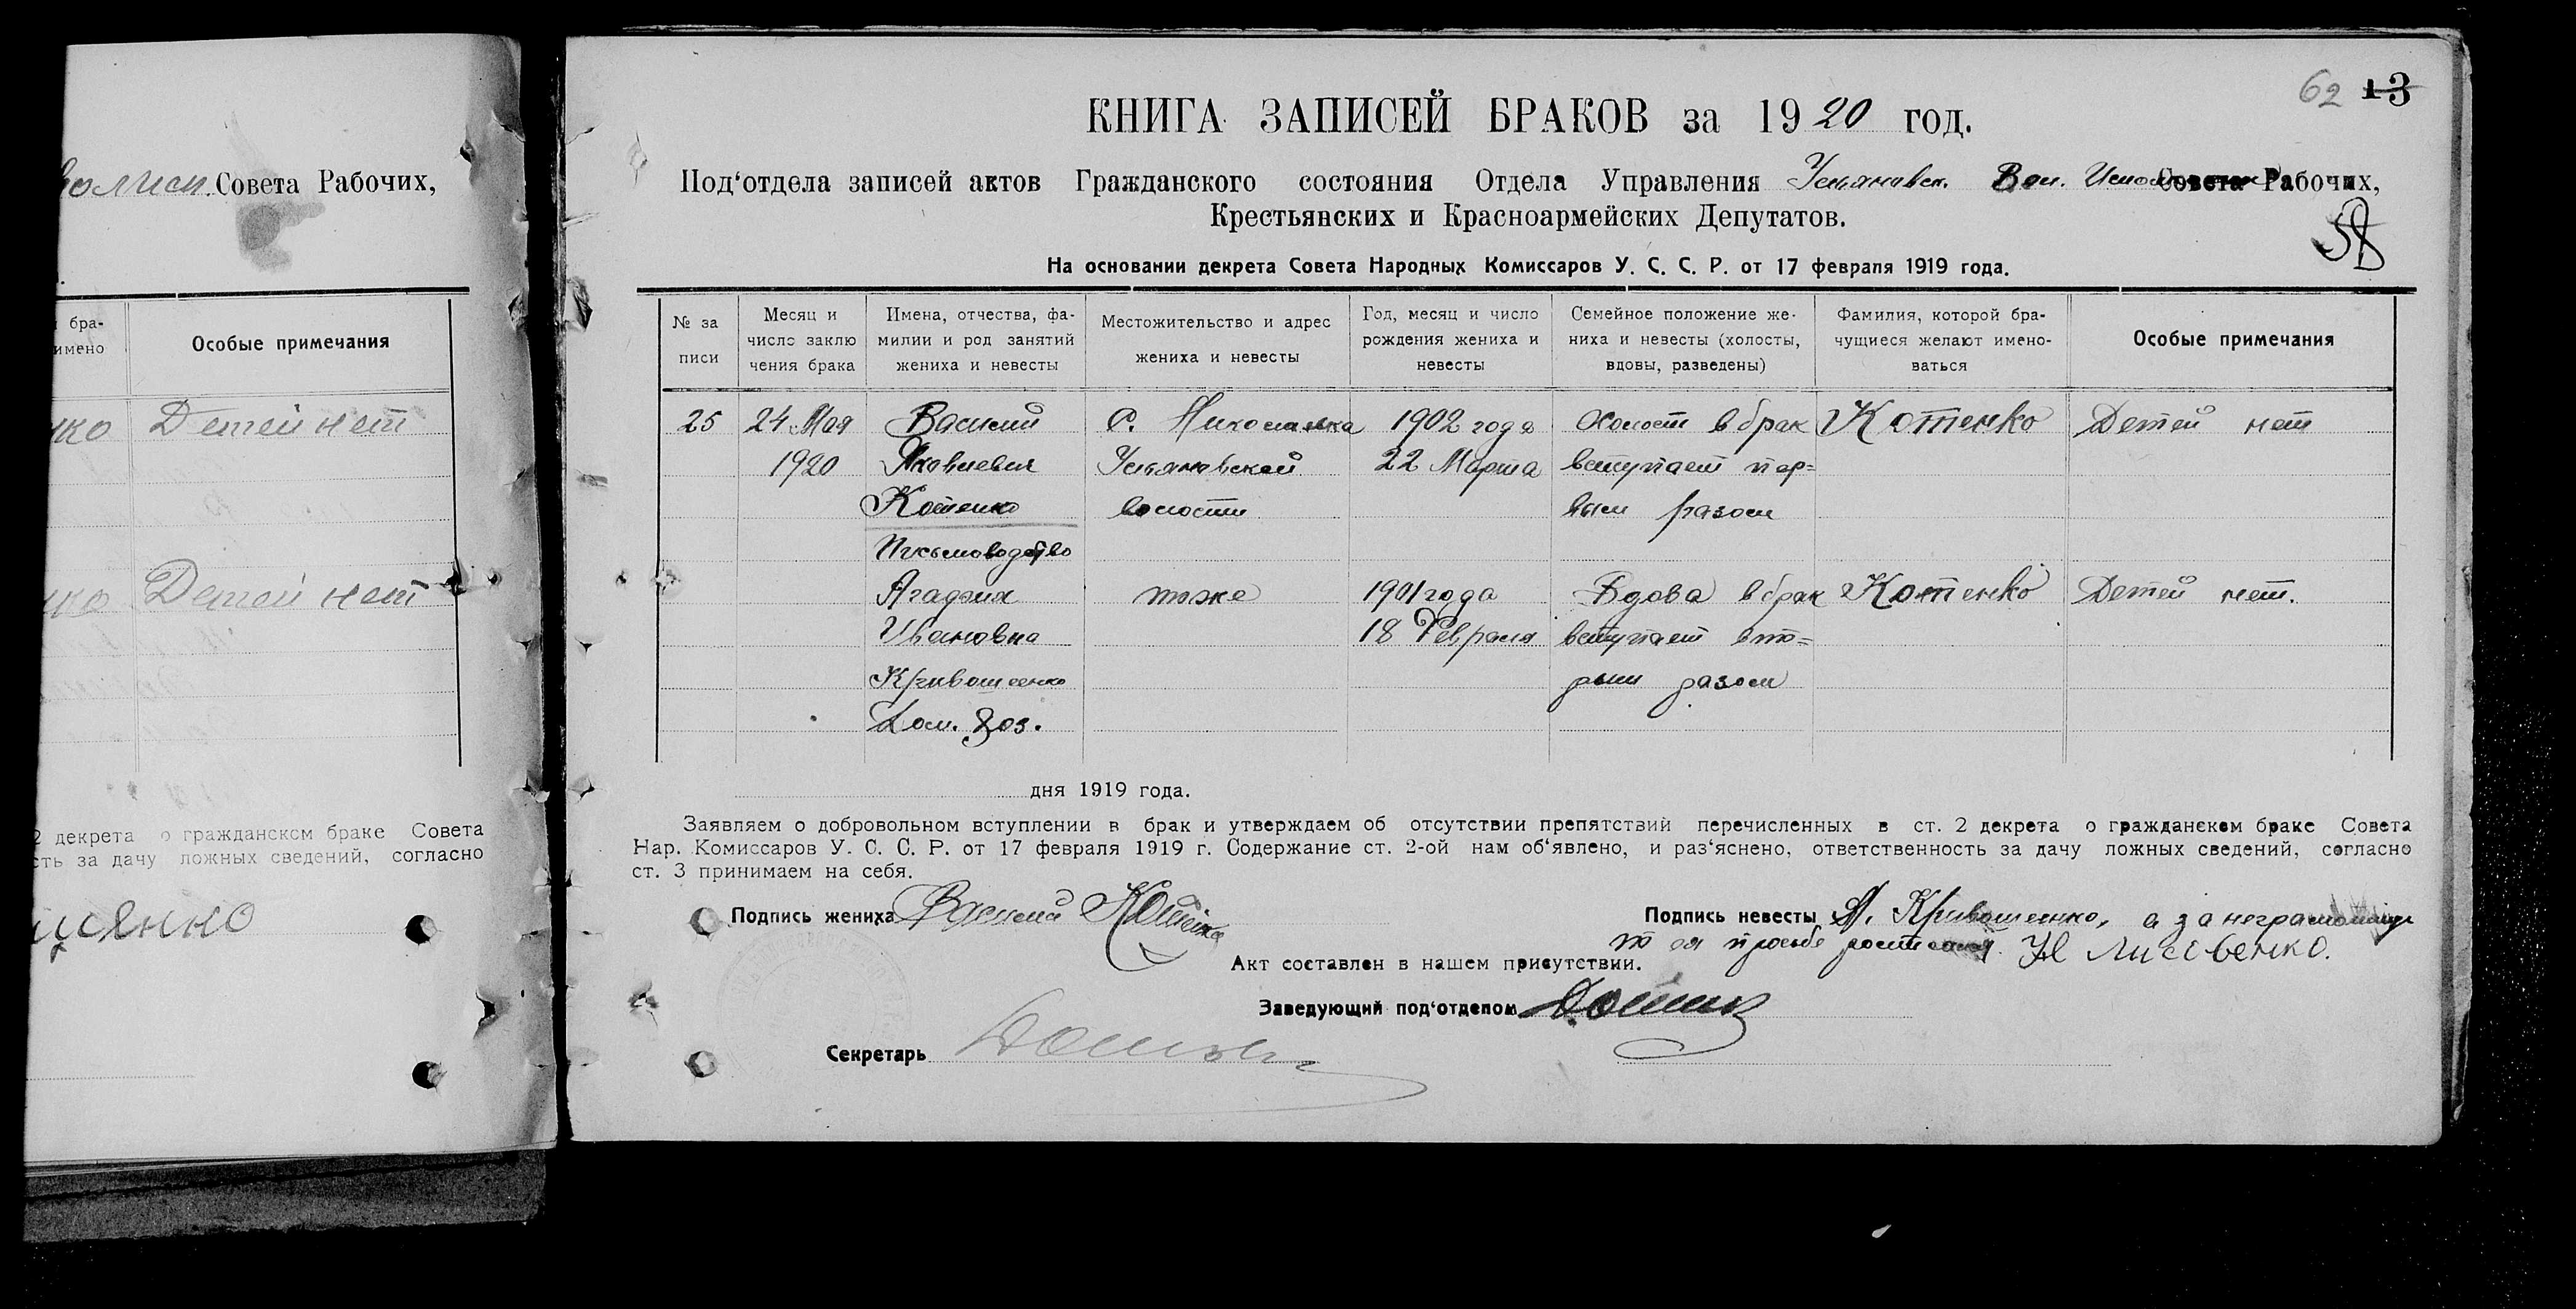 62 13
КНИГА ЗАПИСЕЙ БРАКОВ за 1920 год.
Под'отдела записей актов Гражданского состояния Отдела Управления Ульяновск. Вол. Совета Рабочих,
Крестьянских и Красноармейских Депутатов.
58
На основании декрета Совета Народных Комиссаров У. С. С. Р. от 17 февраля 1919 года.
№ за
писи
Месяц и
число заклю
чения брака
Имена, отчества, фа-
милии и род занятий
жениха и невесты
Местожительство и адрес
жениха и невесты
Год, месяц и число
рождения жениха и
невесты
Семейное положение же-
ниха и невесты (холосты,
вдовы, разведены)
Фамилия, которой бра-
чущиеся желают имено-
ваться
Особые примечания
25
24 Мая
1920
Василий
Яковлевич
Котенко
Письмоводство
С. Николаевка
Ульяновской
волости
1902 года
22 Марта
Холост в брак
вступает пер=
вым разом
Котенко
Детей нет
Агафия
Ивановна
Кривошеенко
Дом. Хоз.
тоже
1901 года
18 Февраля
Вдова в брак
вступает вто=
рым разом
Котенко
Детей нет.
дня 1919 года.
Заявляем о добровольном вступлении в брак и утверждаем об отсутствии препятствий перечисленных в ст. 2 декрета о гражданском браке Совета
Нар. Комиссаров У. С. С. Р. от 17 февраля 1919 г. Содержание ст. 2-ой нам об'явлено, и раз'яснено, ответственность за дачу ложных сведений, согласно
ст. 3 принимаем на себя.
Подпись жениха Василий Котенко
Подпись невесты А. Кривошеенко, а за неграмотную
по ея просьбе Лисовенко.
Акт составлен в нашем присутствии.
Заведующий под'отделом
Секретарь
Совета Рабочих,
бра-
имено
Особые примечания
нко Детей нет
нко Детей нет
2 декрета о гражданском браке Совета
сть за дачу ложных сведений, согласно